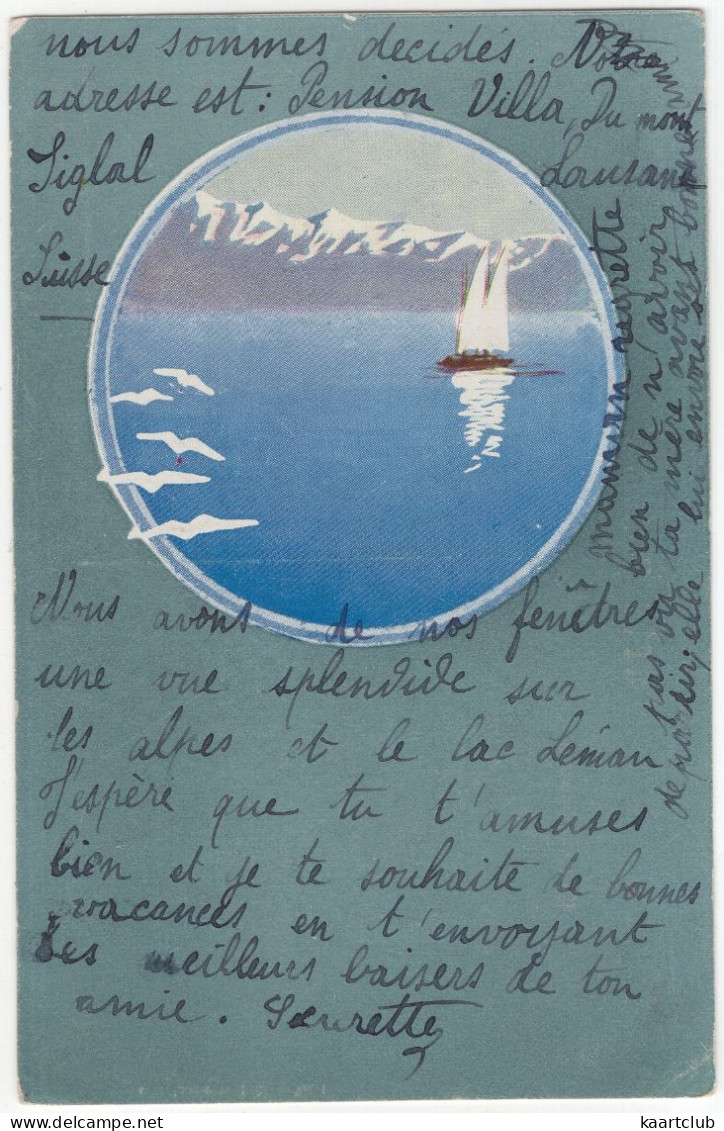 nous sommes decidés. Notre
adresse est: Pension Villa, Du mont
Siglal Lausane
Suisse
Nous avons de nos fenêtres
une vue splendide sur
les alpes et le lac Léman
J'espère que tu t'amuses
bien et je te souhaite de bonnes
vacances en t'envoyant
les meilleurs baisers de ton
amie.
maman regrette
bien de n'avoir
pas vu ta mère avant
de partir, elle lui envoie
kaartclub